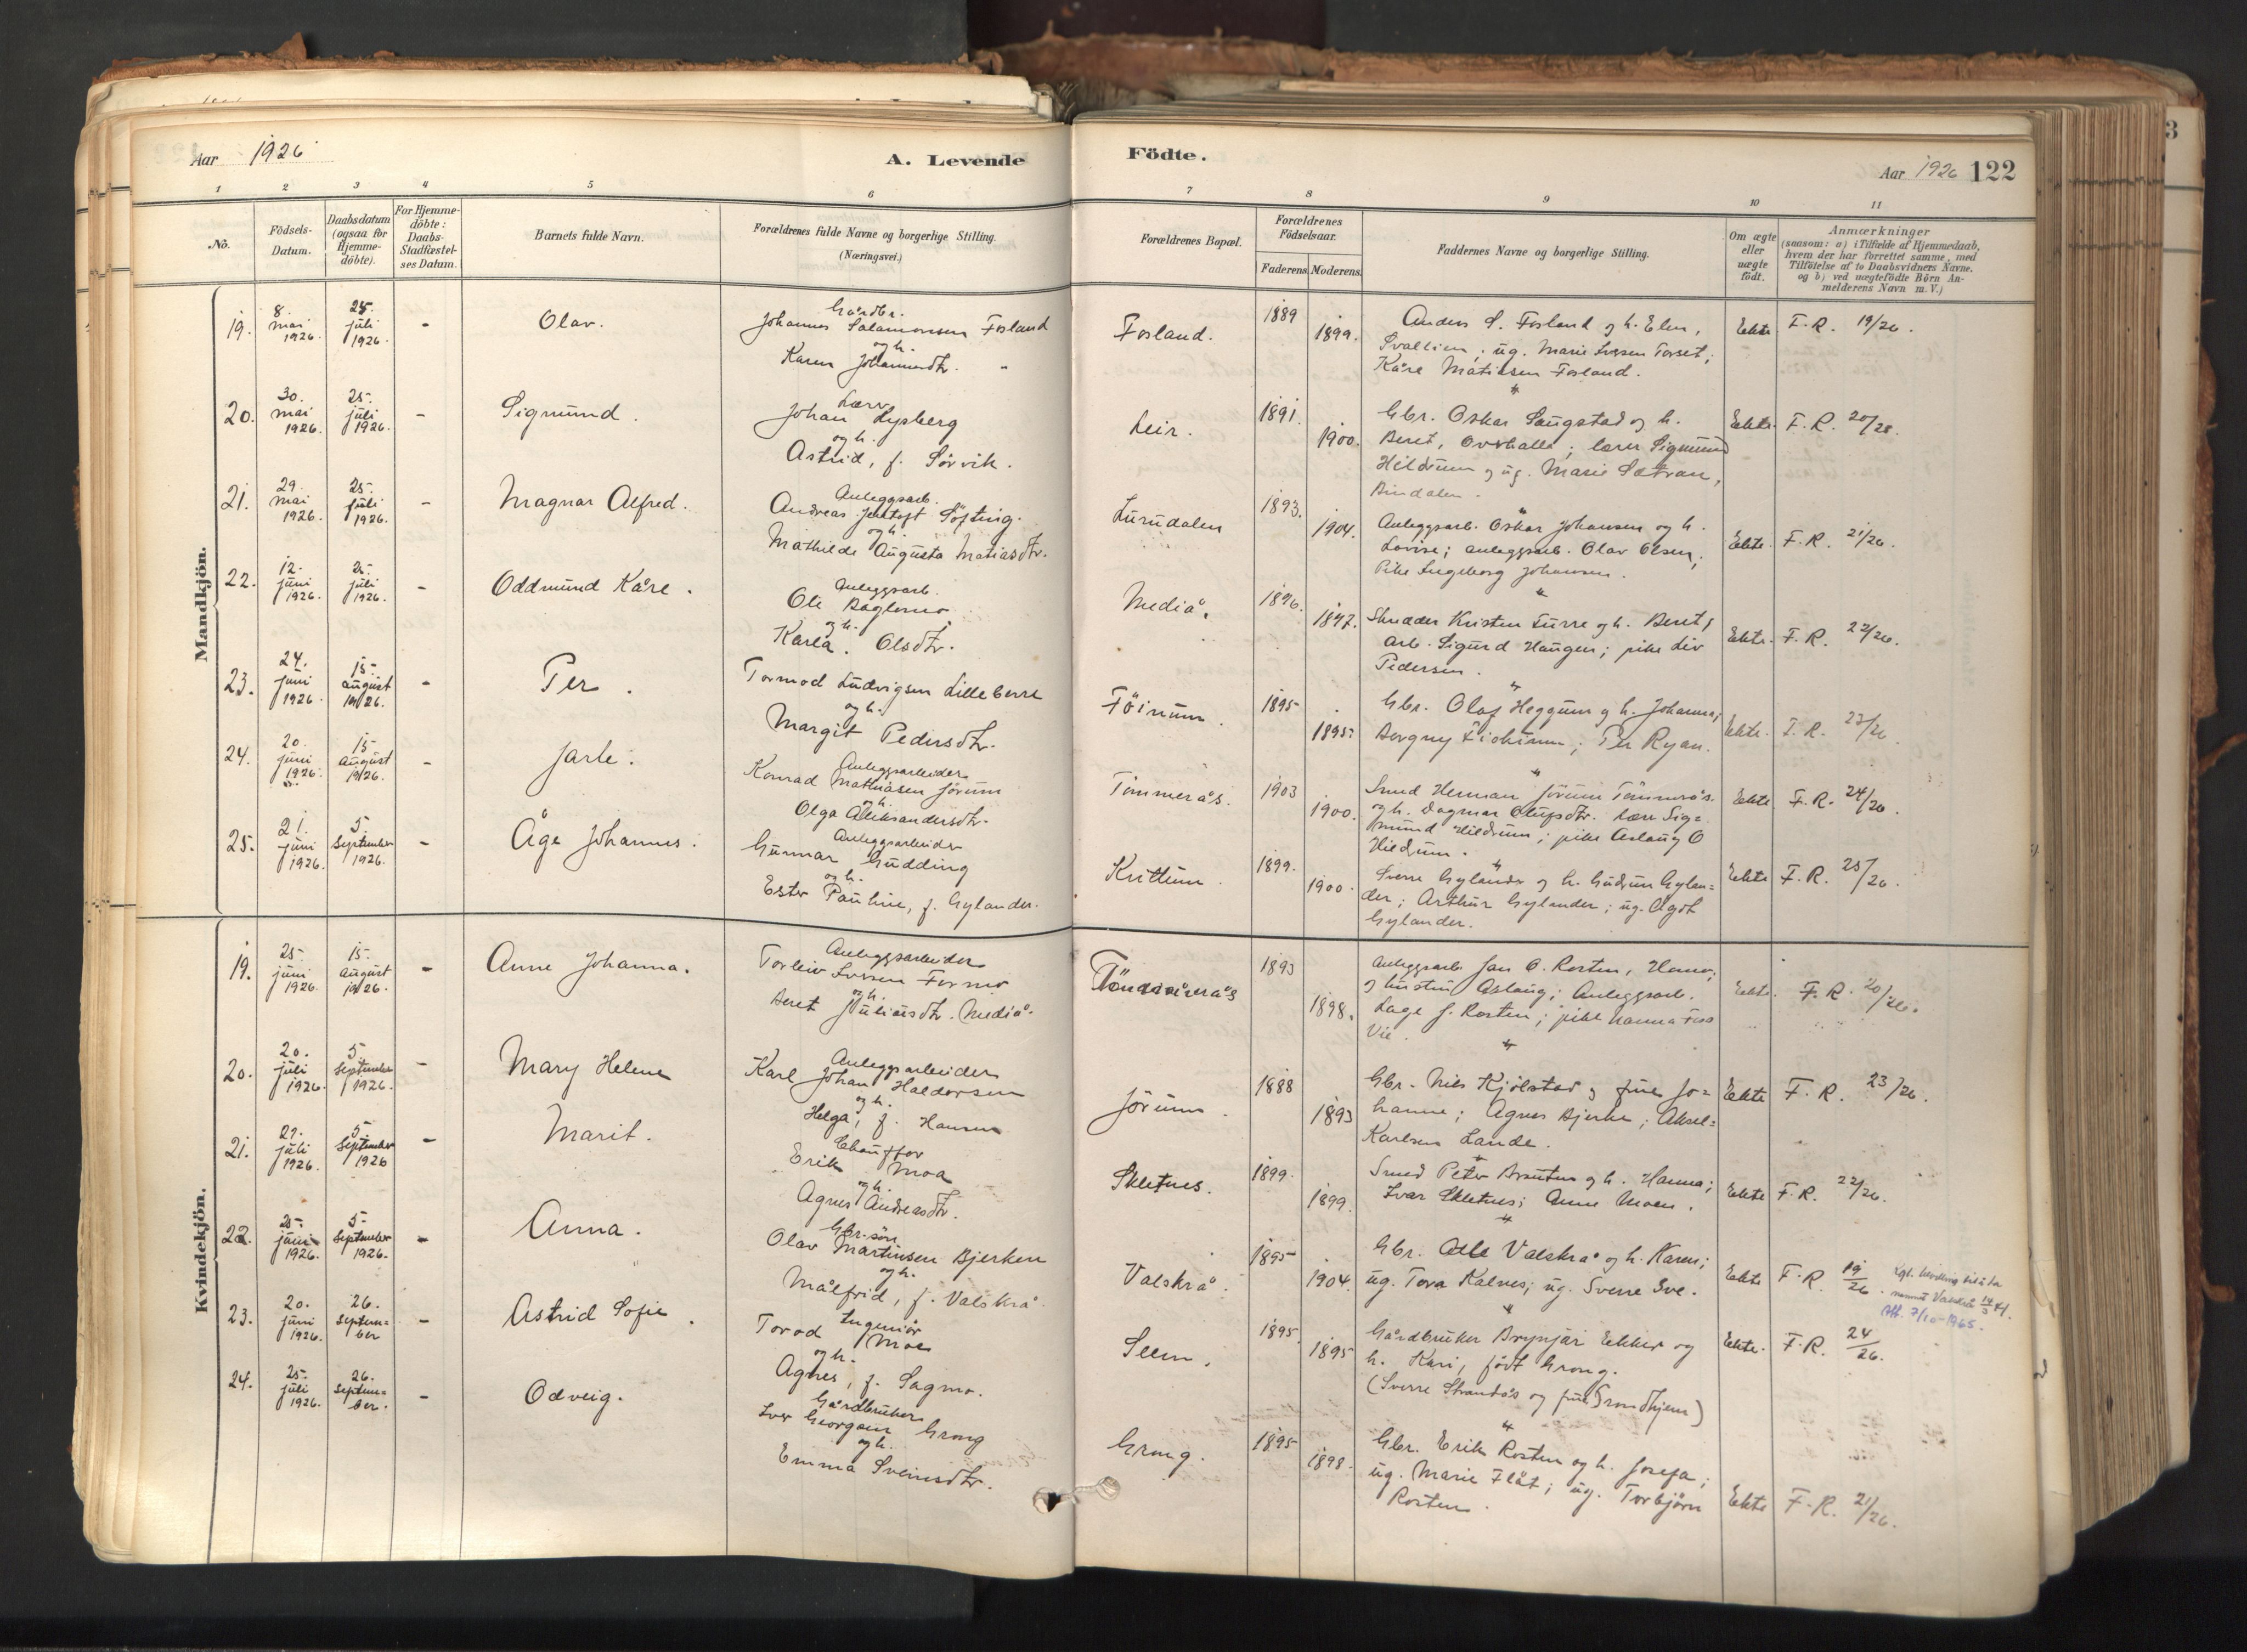 Aar 1926
A. Levende
Födte.
Aar 1926 122
1 2 3 4 5 6 7 8 9 10 11
No.
Födsels-
Datum.
Daabsdatum
(ogsaa for
Hjemme-
döbte).
For Hjemme-
döbte:
Daabs-
Stadfæstel-
ses Datum.
Barnets fulde Navn.
Forældrenes fulde Navne og borgerlige Stilling.
(Næringsvei.)
Forældrenes Bopæl.
Forældrenes
Födselsaar.
Faderens. Moderens.
Faddernes Navne og borgerlige Stilling.
Om ægte
eller
uægte
födt.
Anmærkninger
(saasom: a) i Tilfælde af Hjemmedaab,
hvem der har forrettet samme, med
Tilföielse af to Daabsvidners Navne.
og b) ved uægtefödte Börn An-
melderens Navn m. V.)
Mandkjön.
19.
8.
mai
1926.
25.
juli
1926.
-
Olav.
Gårdbr.
Johannes Salamonsen Forland
og h.
Karen Johannesdtr. "
Forland.
1889
1899.
Anders S. Forland og h. Elen,
ug. Marie Iversen Torset;
Kåre Matiesen Forland.
Ekte
F. R. 19/26.
20.
30.
mai
1926.
25.
juli
1926.
-
Sigmund.
Lærer
Johan Lysberg
og h.
Astrid, f. Sørvik.
Leir.
1891.
1900.
Gbr. Oskar Saugstad og h.
Beret, Overhalla; lærer Sigmund
Hildrum og ug. Marie Sætran,
Bindalen.
Ekte.
F. R. 20/26.
21.
29.
mai
1926.
25.
juli
1926.
-
Magnar Alfred.
Anleggsarb.
Andreas Jentoft Söfting.
og h.
Mathilde Augusta Matiasdtr.
Lurudalen
1893.
1904.
Anleggsarb. Oskar Johansen og h.
Lovise; anleggsarb. Olav Olsen;
Pike Ingeborg Johansen.
Ekte.
F. R. 21/26.
22.
12.
juni
1926.
25.
juli
1926.
-
Oddmund Kåre.
Anleggsarb.
Ole Baglomo
og h.
Karla. Olsdtr.
Mediå.
1896.
1897.
Skredder Kristen Lurre og h. Beret;
arb. Sigurd Haugen; pike Liv
Pedersen.
Ekte.
F. R. 22/26.
23.
24.
juni
1926.
15.
august
1926.
-
Per.
Tormod Ludvigsen Lilleberre
og h.
Margit Pedersdtr.
Föinum.
1895
1895.
Gbr. Olaf Heggum og h. Johanna;
Borgny; Per Ryan.
Ekte.
F. R. 23/26
24.
20.
juni
1926.
15.
august
1926.
-
Jarle.
Anleggsarbeider
Konrad Mathiasen Jörum
og h.
Olga Aleksandersdtr.
Tömmerås.
1903
1900.
Smed Herman Jörum Tömmerås.
og h. Dagmar Olufsdtr. Lærer Sig=
mund Hildrum; pike Aslaug O
Hildrum.
Ekte
F. R. 24/26.
25.
21.
juni
1926.
5.
September
1926.
-
Åge Johannes.
Anleggsarbeider
Gunnar Gudding
og h.
Ester Pauline, f. Gylander.
Kvittum.
1899.
1900.
Sverre Gylander og h. Gudrun Gylan=
der; Arthur Gylander; ug. Agot
Gylander.
Ekte
F. R. 25/26.
Kvindekjön.
19.
25.
juni
1926.
15.
august
1926.
-
Anne Johanna.
Anleggsarbeider
Torleiv Iversen Formo
og h.
Beret Juliusdtr. Mediå.
Tömmerås
1893
1898.
Anleggsarb. Jan O. Rosten, Hamo;
og hustru Aslaug; Anleggsarb.
Lage J. Rosten; pike Hanna
Vie.
Ekte.
F. R. 20/26.
20.
20.
juli
1926.
5.
September
1926.
-
Mary Helene
Anleggsarbeider
Karl Johan Haldorsen
og h.
Helga, f. Hansen
Jörum.
1888
1893
Gbr. Nils Kjölstad og frue Jo=
hanne; Agnes Bjerke; Aksel=
Karlsen Lande.
Ekte
F. R. 23/26.
21.
27.
juli
1926.
5.
September
1926
-
Marit.
Chauffør
Erik Moa
og h.
Agnes Andreasdtr.
Skletnes.
1899.
1899.
Smed Peter og h. Hanna;
Ivar Skletnes; Anne Moen.
Ekte
F. R. 22/26.
22.
25.
juni
1926.
5.
September
1926.
-
Anna.
Gbr. sön
Olav Martinsen Bjerken
og h.
Målfrid, f. Valskrå.
Valskrå.
1895
1904.
Gbr. Atle Valskrå og h. Karen;
ug. Tora Kalnes; ug. Sverre Sve.
Ekte
F. R. 19/26.
Kgl. bevilling til å ta
navnet Valskrå
7/10-1965.
23.
20.
juni
1926.
26.
Septem=
ber
-
Astrid Sofie.
Ingeniör
Torod Moe
og h.
Agnes, f. Sagmo.
Seem.
1895.
1895
Gårdbruker Brynjar Ekker og
h. Kari, född Grong.
(Sverre Strandås og frue Trondhjem)
Ekte.
F. R. 24/26.
24.
25.
juli
1926.
26.
Septem=
ber.
-
Odveig.
Gårdbruker
Iver Georgsen Grong
og h.
Emma Sveinsdtr.
Grong.
1895
1898.
Gbr. Erik Rosten og h. Josefa;
ug. Marie Flåt; ug. Torbjörn
Rosten.
Ekte
F. R. 21/26.